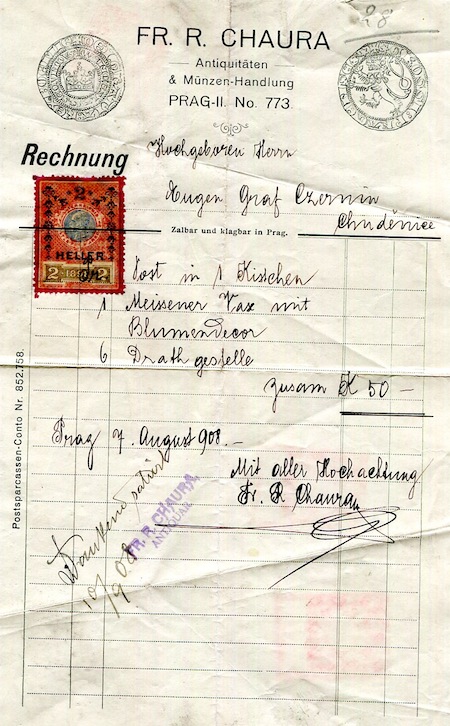 28
FR. R. CHAURA
Antiquitäten
& Münzen-Handlung
PRAG-II. No. 773.
Rechnung
Hochgeboren Herrn
Eugen Graf Czernin
Chuděnice
Zalbar und klagbar in Prag.
2
HELLER
2 1898 2
Post in 1 Kistchen
1 Meissener Vax mit
Blumendecor
6 Drathgestelle
zusam K 50 —
Prag 7. August 908.—
Mit aller Hochachtung
Fr. R Chaura
Dankend saldirt
10/9 08
FR. R. CHAURA
ANTIQUAR
Postsparcassen-Conto Nr. 852.758.